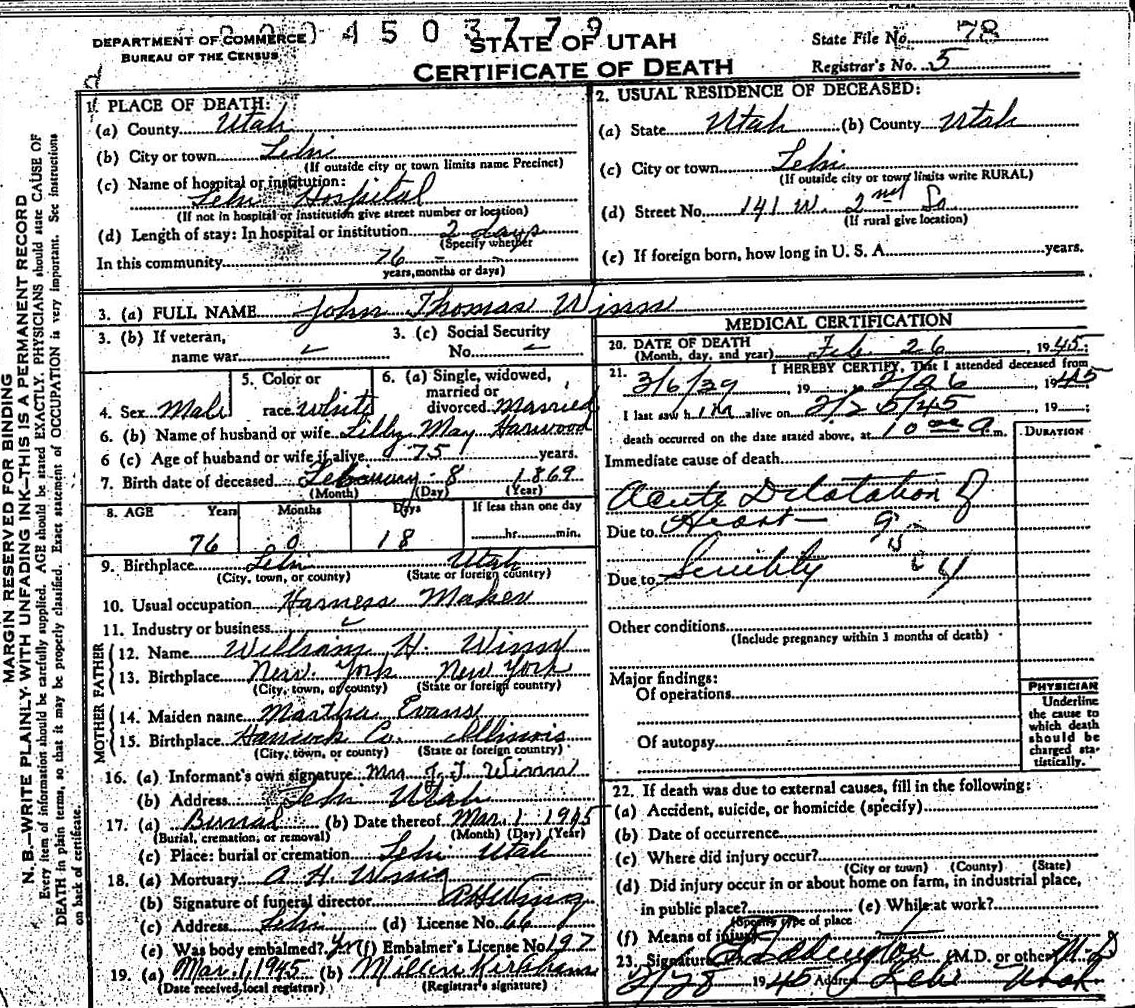 2004503779
DEPARTMENT OF COMMERCE
BUREAU OF THE CENSUS
STATE OF UTAH
CERTIFICATE OF DEATH
State File No. 78
Registrar's No. 5
MARGIN RESERVED FOR BINDING
N. B.—WRITE PLAINLY WITH UNFADING INK—THIS IS A PERMANENT RECORD
Every item of information should be carefully supplied. AGE should be stated EXACTLY. PHYSICIANS should state CAUSE OF
DEATH in plain terms, so that it may be properly classified. Exact statement of OCCUPATION is very important. See instructions
on back of certificate.
1. PLACE OF DEATH:
(a) County Utah
(b) City or town Lehi
(If outside city or town limits name Precinct)
(c) Name of hospital or institution:
Lehi Hospital
(If not in hospital or institution give street number or location)
(d) Length of stay: In hospital or institution 2 days
(Specify whether
In this community 76
years, months or days)
2. USUAL RESIDENCE OF DECEASED:
(a) State Utah (b) County Utah
(c) City or town Lehi
(If outside city or town limits write RURAL)
(d) Street No. 141 W. 2nd So
(If rural give location)
(e) If foreign born, how long in U. S. A. years.
3. (a) FULL NAME John Thomas Winn
3. (b) If veteran,
name war
3. (c) Social Security
No.
4. Sex Male
5. Color or
race White
6. (a) Single, widowed,
married or
divorced Married
6. (b) Name of husband or wife Lilly May Harwood
6 (c) Age of husband or wife if alive 75 years.
7. Birth date of deceased February 8 1869
(Month) (Day) (Year)
8. AGE Years Months Days If less than one day
76 0 18 hr. min.
9. Birthplace Lehi Utah
(City, town, or county) (State or foreign country)
10. Usual occupation Harness Maker
11. Industry or business
FATHER
12. Name William H. Winn
13. Birthplace New York New York
(City, town, or county) (State or foreign country)
MOTHER
14. Maiden name Martha Evans
15. Birthplace Hancock Co. Illinois
(City, town, or county) (State or foreign country)
16. (a) Informant's own signature Mrs J. T. Winn
(b) Address Lehi Utah
17. (a) Burial (b) Date thereof Mar. 1 1945
(Burial, cremation, or removal) (Month) (Day) (Year)
(c) Place: burial or cremation Lehi Utah
18. (a) Mortuary A H. Wing
(b) Signature of funeral director AH Wing
(c) Address Lehi (d) License No. 66
(e) Was body embalmed? Yes (f) Embalmer's License No 197
19. (a) Mar. 1, 1945 (b) Kirkham
(Date received local registrar) (Registrar's signature)
MEDICAL CERTIFICATION
20. DATE OF DEATH
(Month, day, and year) Feb 26, 1945;
21. I HEREBY CERTIFY, That I attended deceased from
3/6/39, 19 2/26, 1945
I last saw him alive on 2/25/45, 19 ;
death occurred on the date stated above, at 10 00 a. m.
DURATION
Immediate cause of death
Acute Dilatation of
Due to Heart
Due to Senility
Other conditions
(Include pregnancy within 3 months of death)
Major findings:
Of operations
Of autopsy
PHYSICIAN
Underline
the cause to
which death
should be
charged sta-
tistically.
22. If death was due to external causes, fill in the following:
(a) Accident, suicide, or homicide (specify)
(b) Date of occurrence
(c) Where did injury occur?
(City or town) (County) (State)
(d) Did injury occur in or about home on farm, in industrial place,
in public place? (e) While at work?
(Specify type of place
(f) Means of injury
23. Signature (M.D. or other) M.D
2/28 1945 Address Lehi Utah